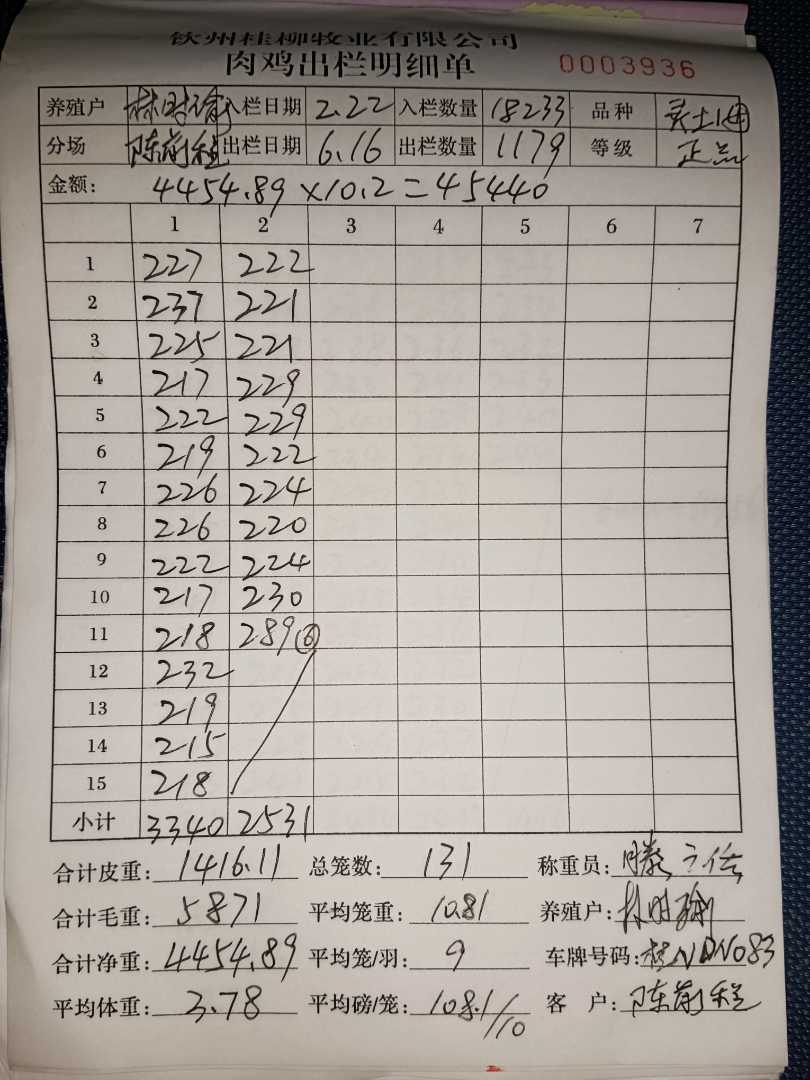 钦州桂柳牧业有限公司
肉鸡出栏明细单 0003936
养殖户 林时瑜 入栏日期 2.22 入栏数量 18233 品种 灵土1母
分场 陈前程 出栏日期 6.16 出栏数量 1179 等级 正品
金额: 4454.89×10.2=45440
1 2 3 4 5 6 7
1 227 222
2 237 221
3 225 221
4 217 229
5 222 229
6 219 222
7 226 224
8 226 220
9 222 224
10 217 230
11 218 289⑥
12 232
13 219
14 215
15 218
小计 3340 2531
合计皮重: 1416.11 总笼数: 131 称重员: 滕主任
合计毛重: 5871 平均笼重: 10.81 养殖户: 林时瑜
合计净重: 4454.89 平均笼/羽: 9 车牌号码: 桂NDN083
平均体重: 3.78 平均磅/笼: 108.1/10 客 户: 陈前程